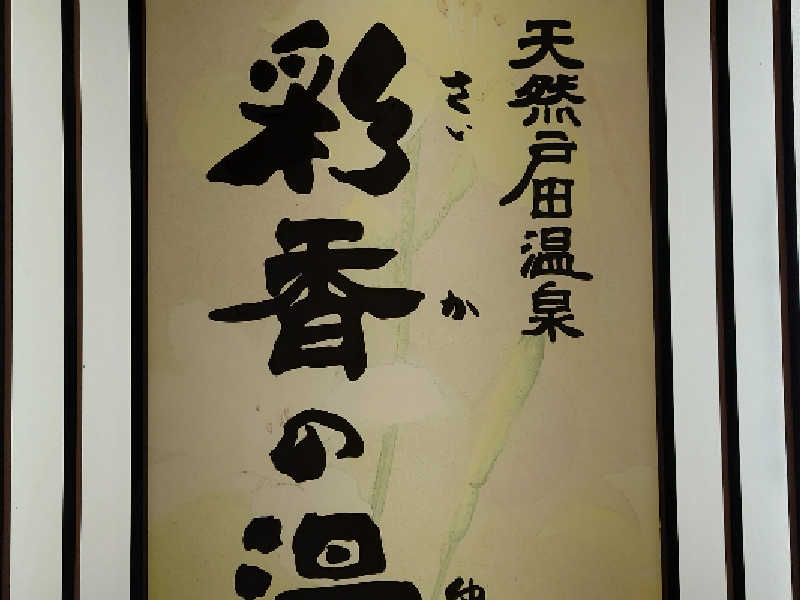 天然戸田温泉
彩香の温
さいか